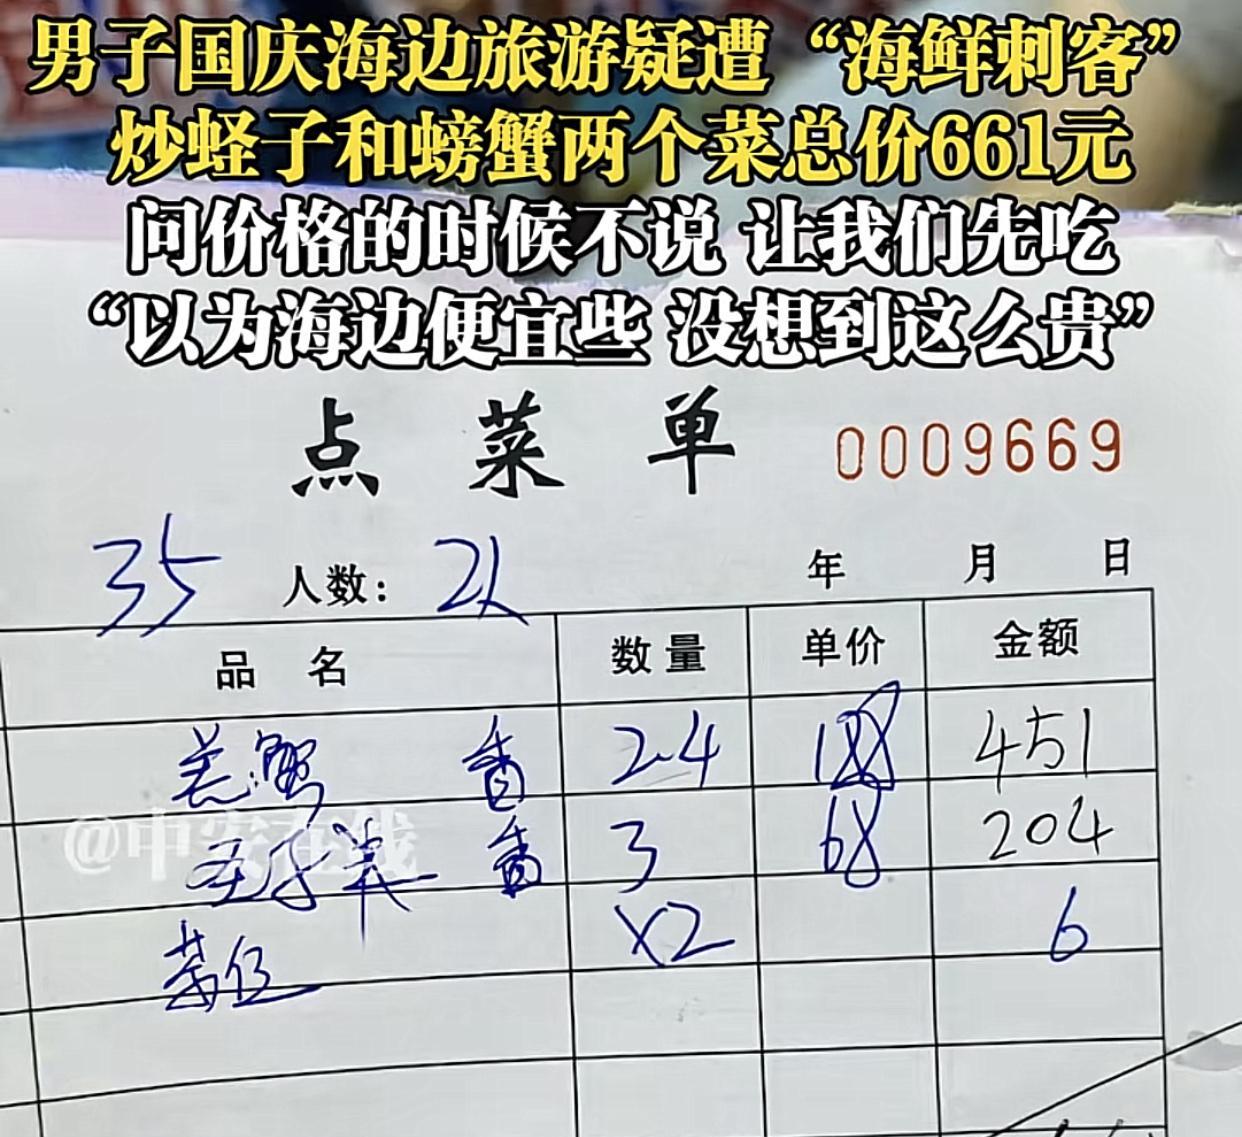 男子国庆海边旅游疑遭“海鲜刺客”
炒蛏子和螃蟹两个菜总价661元
问价格的时候不说 让我们先吃
“以为海边便宜些 没想到这么贵”
点菜单 0009669
35 人数: 2人 年 月 日
品名 数量 单价 金额
蟹 香 2.4 188 451
@中安在线
3 68 204
茶位 x2 6